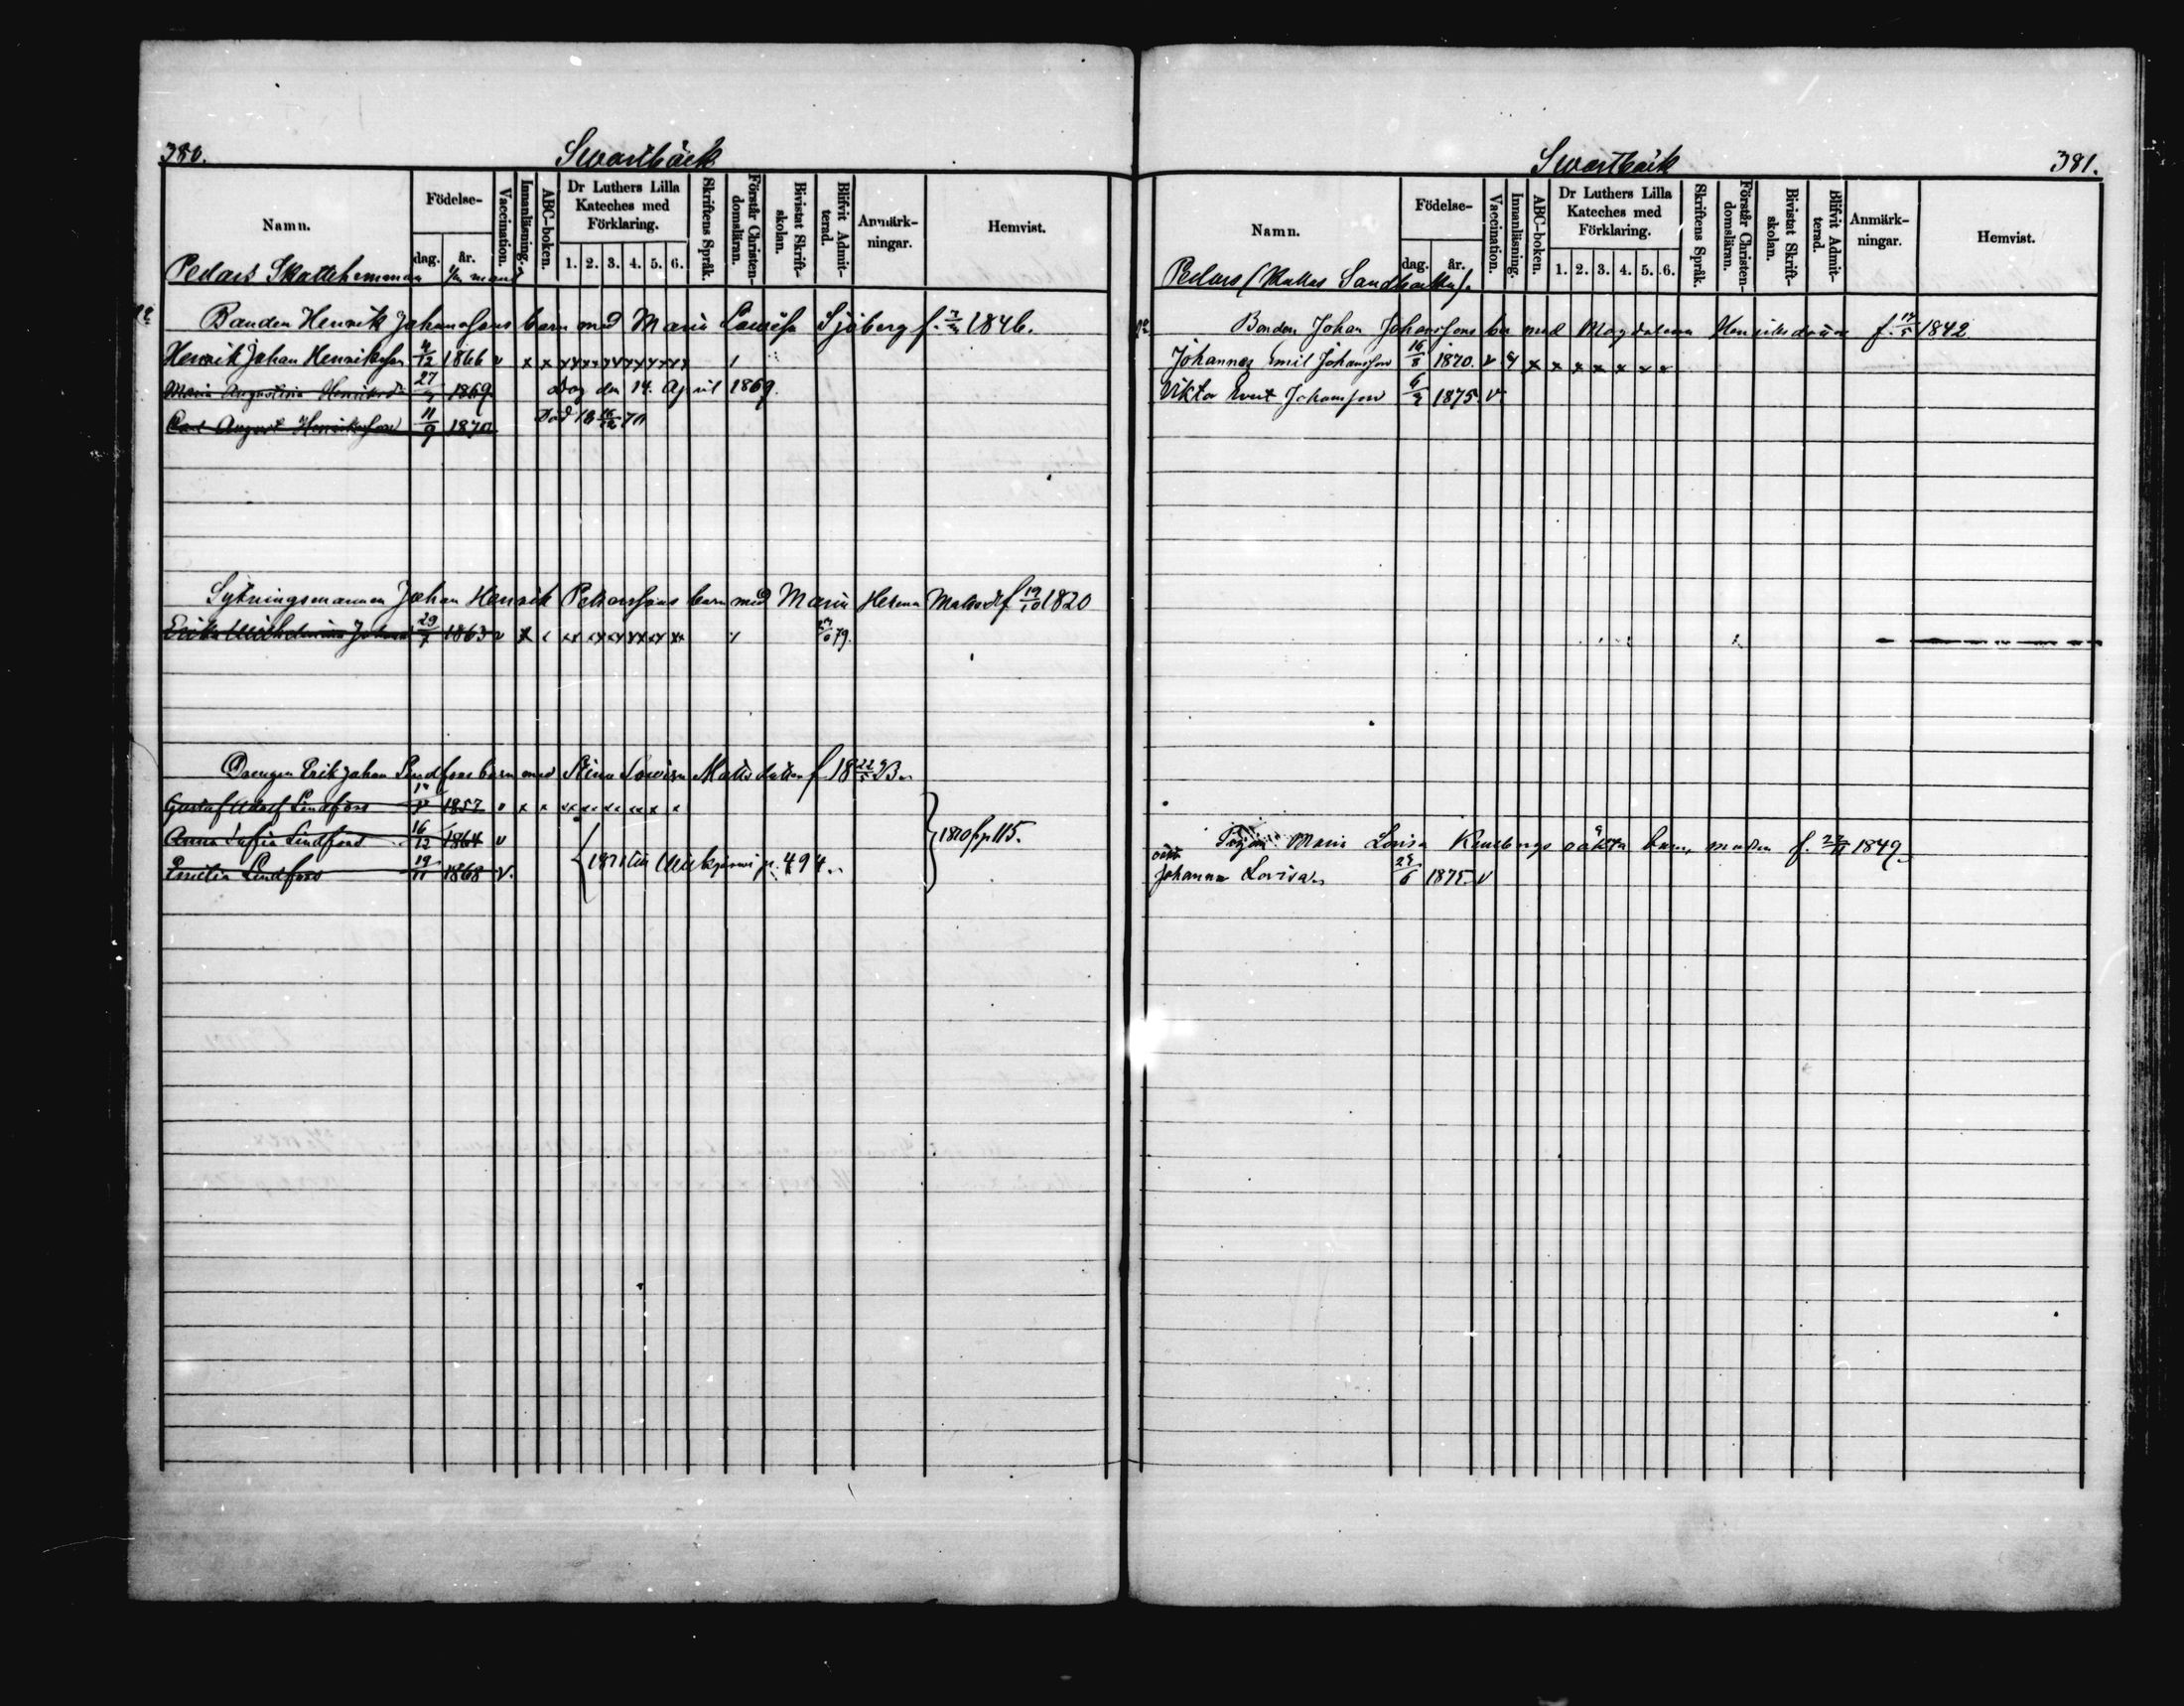 380.
Swartbäck
Namn.
Födelse-
dag.
år.
Vaccination.
Innanläsning.
ABC-boken.
Dr Luthers Lilla Kateches med Förklaring.
1. 2. 3. 4. 5. 6.
Skriftens Språk.
Förstår Christen-domsläran.
Bivistat Skrift-skolan.
Blifvit Admit-terad.
Anmärk-ningar.
Hemvist.
Pedars Skattehemman
Bonden Henrik Johanssons barn med Maria Lowisa Sjöberg f. 1846.
Henrik Johan Henriksson 4/12 1866 v x x x x x x x x
Maria Augustina Henriksdr 27/3 1869 Dog den 14. April 1869.
Carl August Henriksson 11/9 1870 Död
Sytningsmannen Johan Henrik Petterssons barn med Maria Helena Matsdr f 19/10 1820
Erika Wilhelmina Johansd 29/7 1863 v x x x x x x x x 79.
Drengen Erik Johan Lindfors barn med Stina Lowisa Matts dotter f. 18 22/5 23
Gustaf Adolf Lindfors 1857 v x x x x x x x x
Anna Sofia Lindfors 16/12 1864 v
1870 p 115.
Emilia Lindfors 19/11 1868 v.
1871 till p. 494.
Swartbäck
381.
Namn.
Födelse-
dag.
år.
Vaccination.
Innanläsning.
ABC-boken.
Dr Luthers Lilla Kateches med Förklaring.
1. 2. 3. 4. 5. 6.
Skriftens Språk.
Förstår Christen-domsläran.
Bivistat Skrift-skolan.
Blifvit Admit-terad.
Anmärk-ningar.
Hemvist.
Pedars (Mattas Sandbacka).
Bonden Johan Johanssons bn med Magdalena Henriksdotter f. 17/5 1842
Johannes Emil Johansson 16/8 1870. v x x x x x x x
Viktor Evert Johansson 6/2 1875 v
Pigan Maria Lovisa oäkta barn, modren f. 1849.
oäkta
Johanna Lovisa 6 1875. v